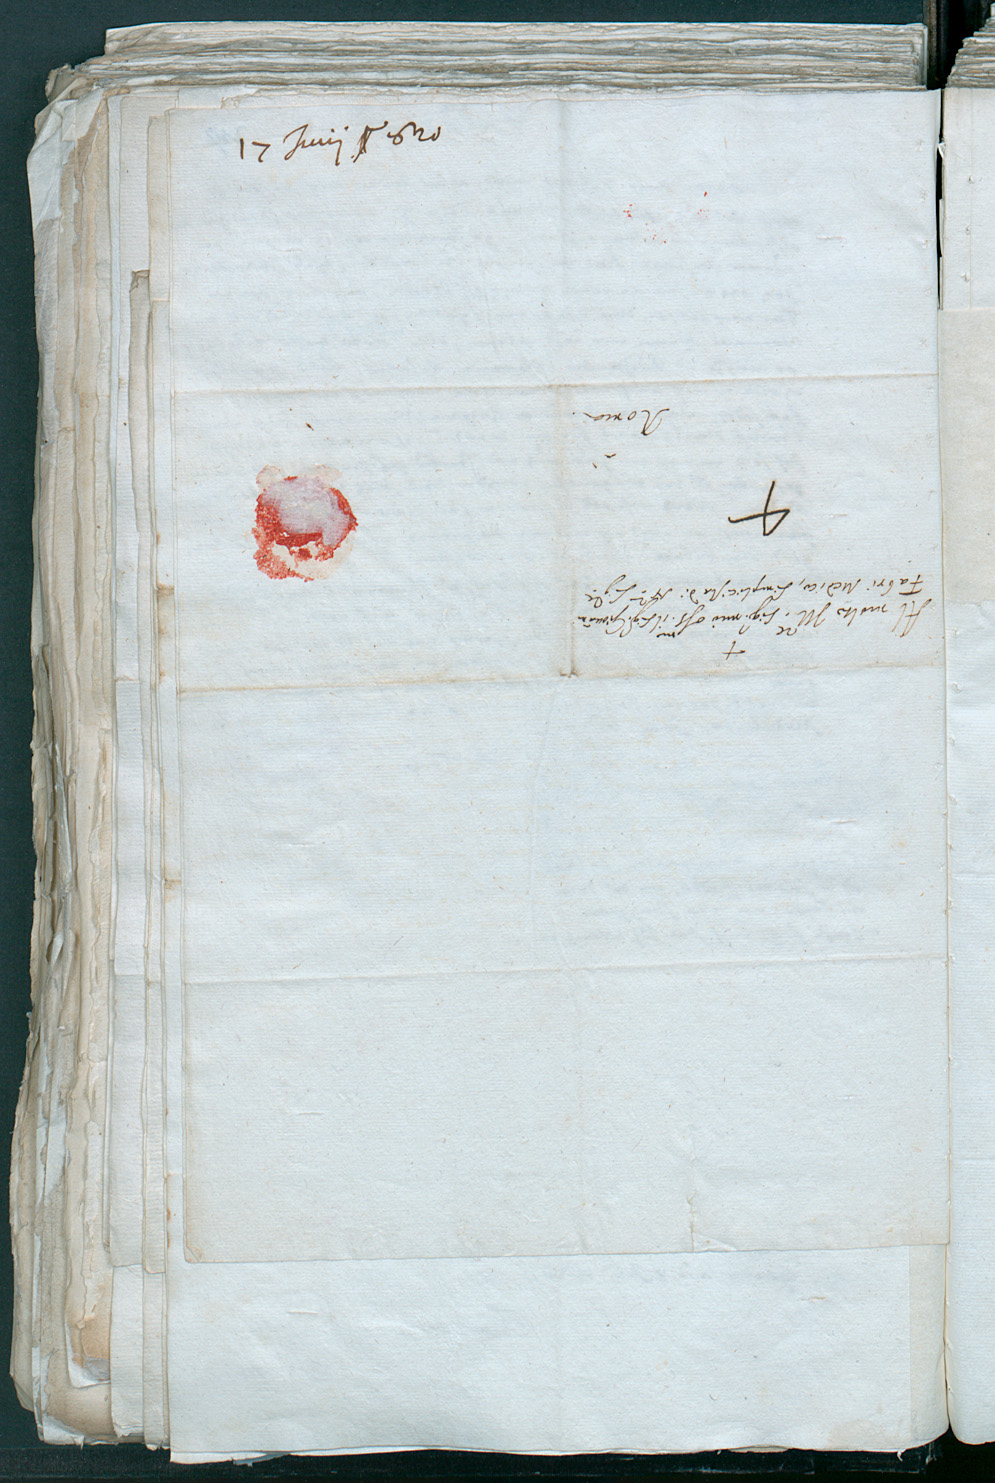 17 Junij 1620
+
Al molto Ill.re Sig.r mio oss.mo il Sig.r Giouan̄
Fabri Medico, Simplicista di N. Sig.re
4
Roma.